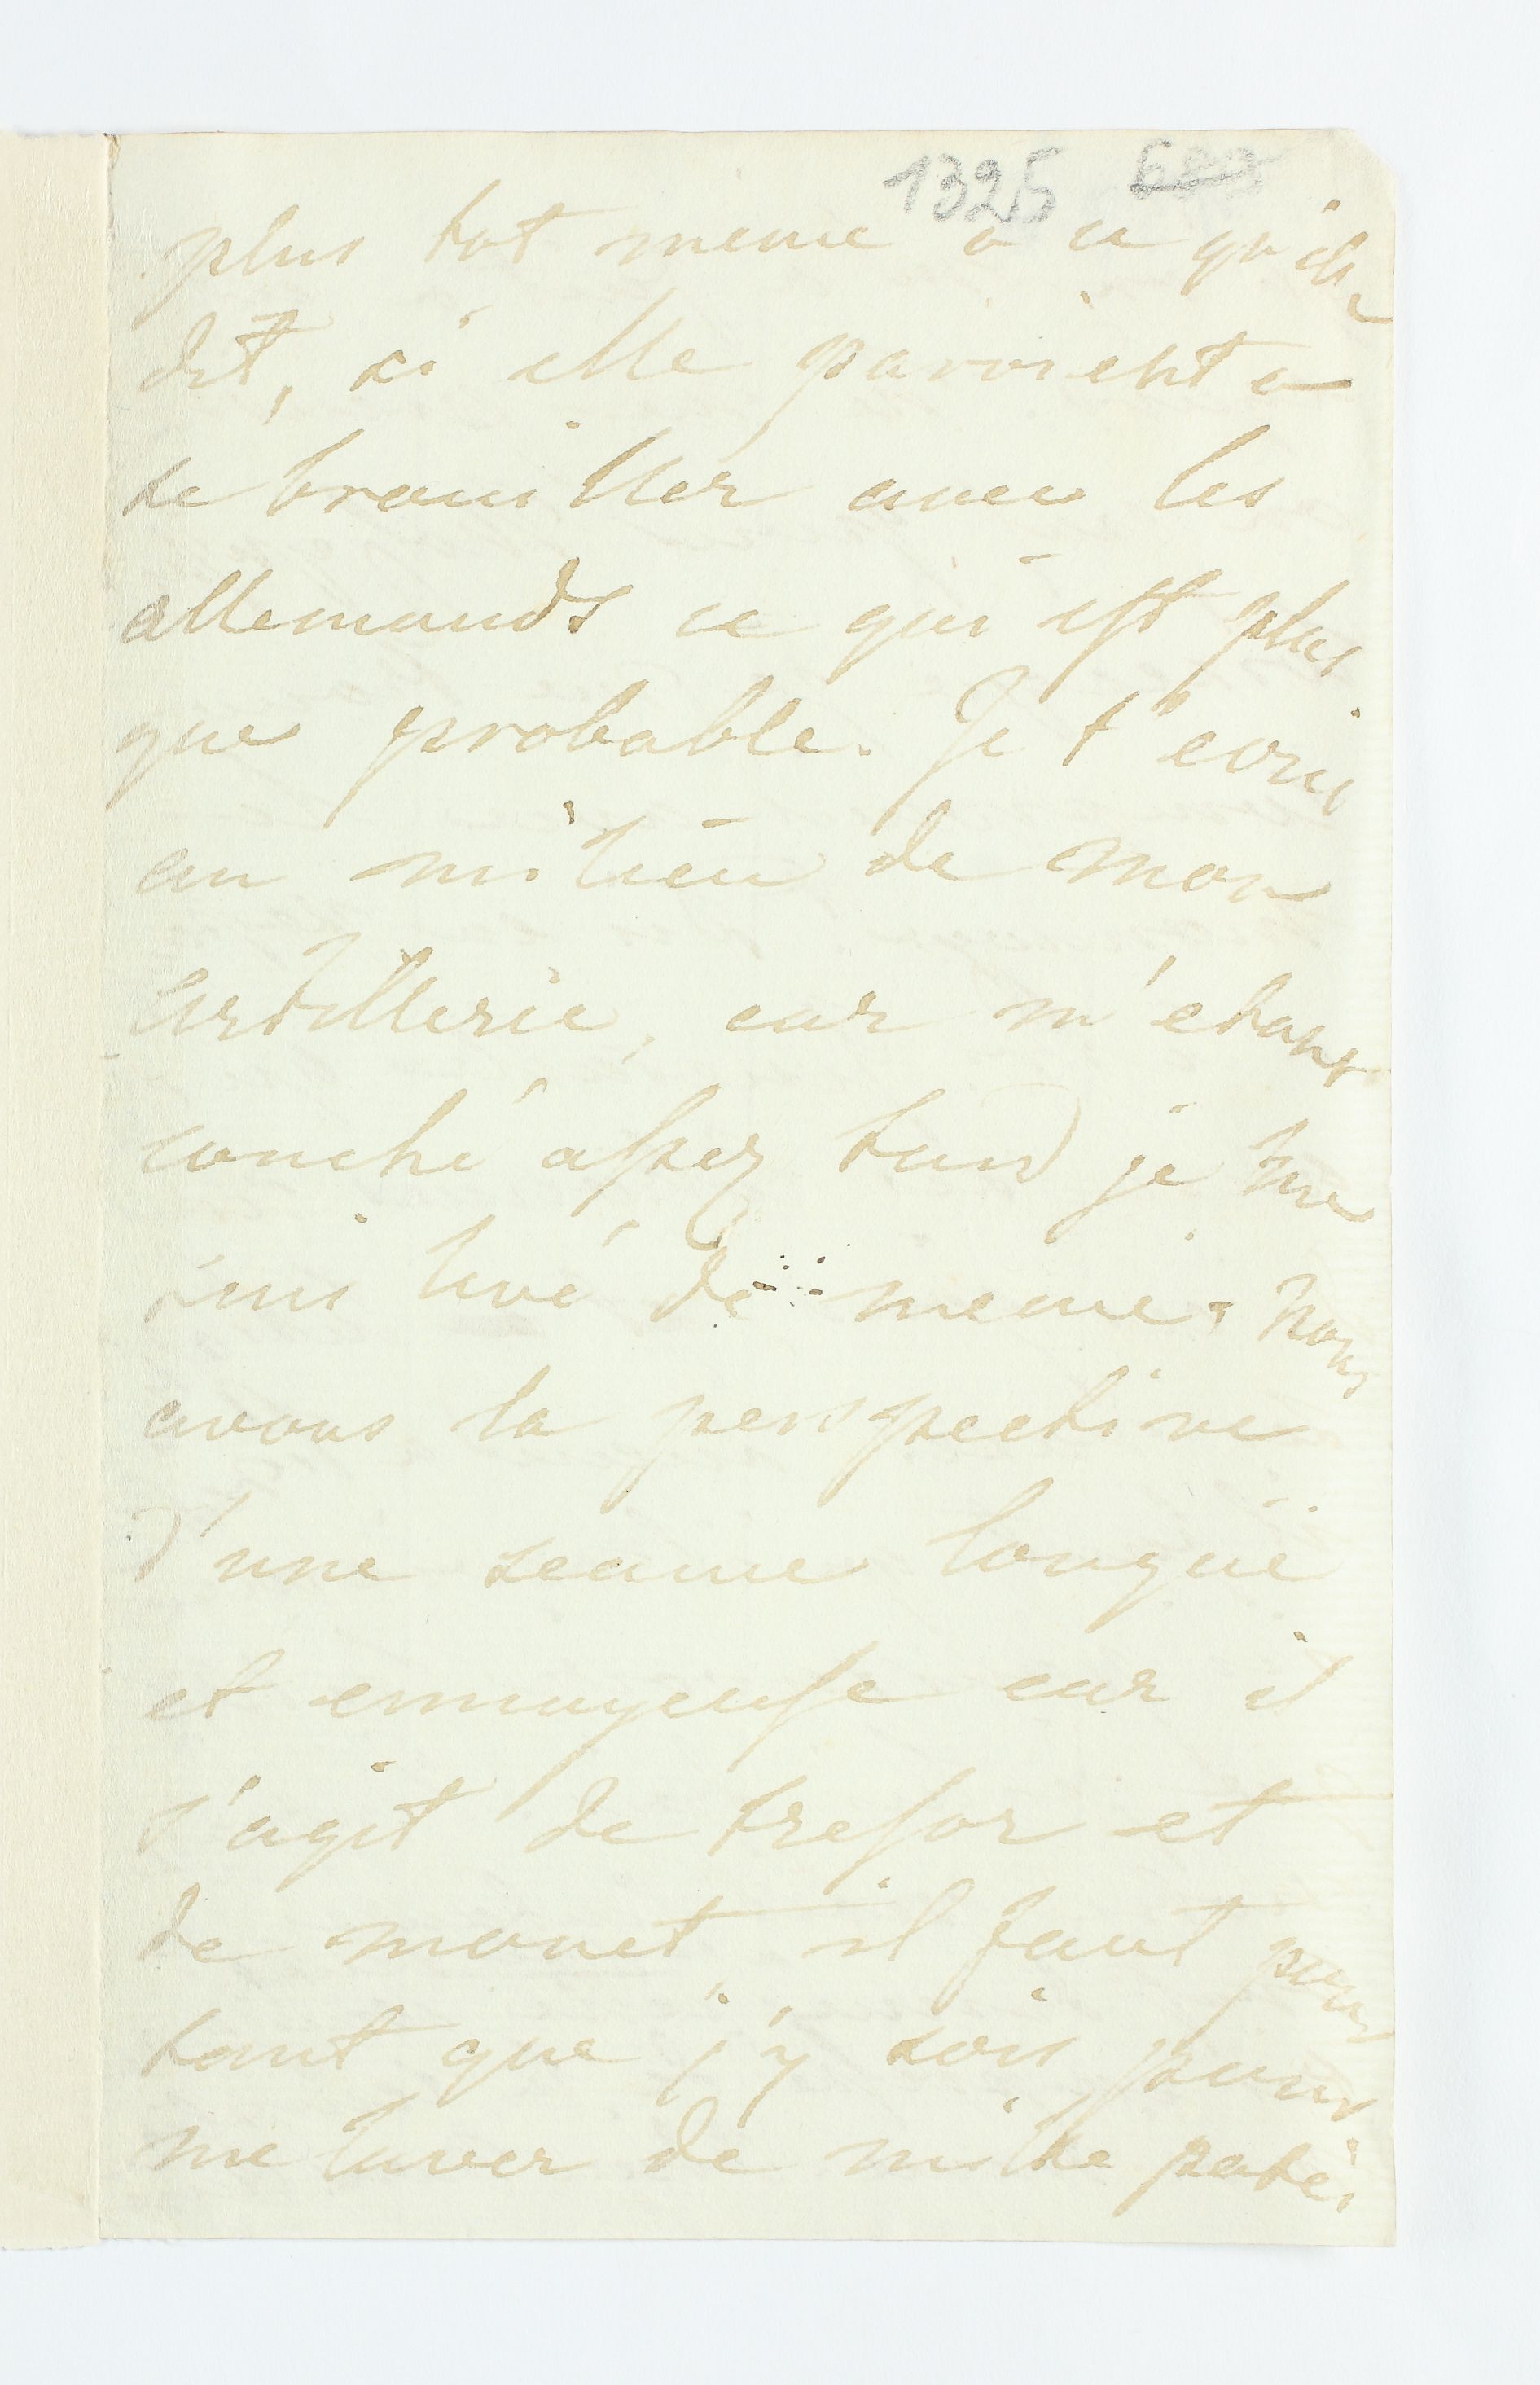 1325
plus tot meme a ce qu'elle
dit, si elle parvient a
se brouiller avec les
allemands ce qui est plus
que probable. Je t'ecris
au milieu de mon
artillerie, car m'etant
couché assez tard je me
suis levé de meme. Nous
avons la perspective
d'une seance longue
et ennuyeuse car il
s'agit de tresor et
de monet, il faut pour
tant que j'y sois pour
me laver de mille petes